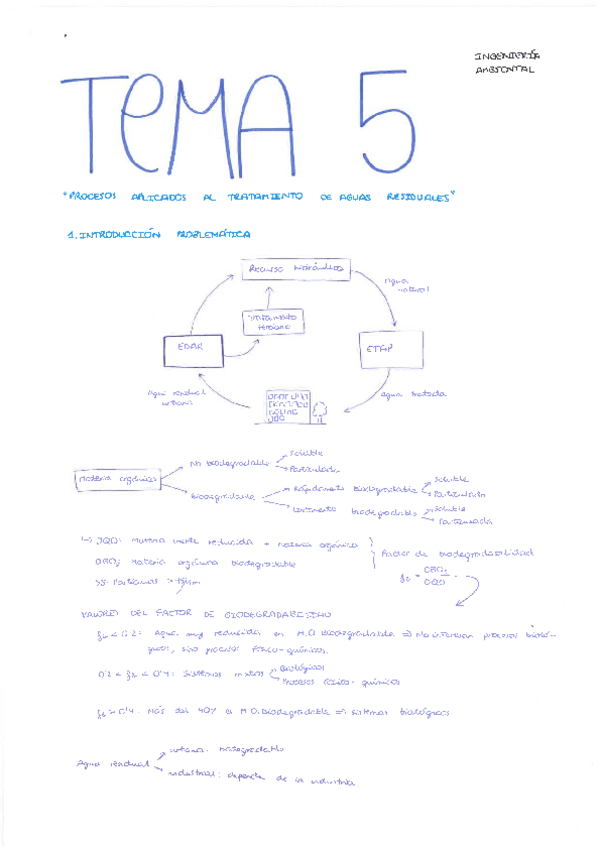 INGENIERÍA
AMBIENTAL
TEMA 5
"PROCESOS APLICADOS AL TRATAMIENTO DE AGUAS RESIDUALES"
1. INTRODUCCIÓN PROBLEMÁTICA
Recurso hidráulico
Agua
natural
Tratamiento
terciario
EDAR
ETAP
Agua residual
urbana
Agua tratada
Materia orgánica
No biodegradable
Soluble
Particulada
Biodegradable
Rápidamente biodegradable
Soluble
Particulada
Lentamente biodegradable
Soluble
Particulada
DQO: materia orgánica
DBO5: Materia orgánica biodegradable
SS: Partículas >
Factor de biodegradabilidad
fb = DBO5 / DQO
VALORES DEL FACTOR DE BIODEGRADABILIDAD
fb < 0'2: Agua muy reducida en M.O. Biodegradable ⇒ No interesan procesos bioló-
gicos, sino procesos físico-químicos.
0'2 < fb < 0'4: Sistemas mixtos
Biológicos
Procesos físico-químicos
fb > 0'4: Más del 40% es M.O. Biodegradable ⇒ sistemas biológicos
Agua residual
urbana: biodegradable
industrial: depende de la industria